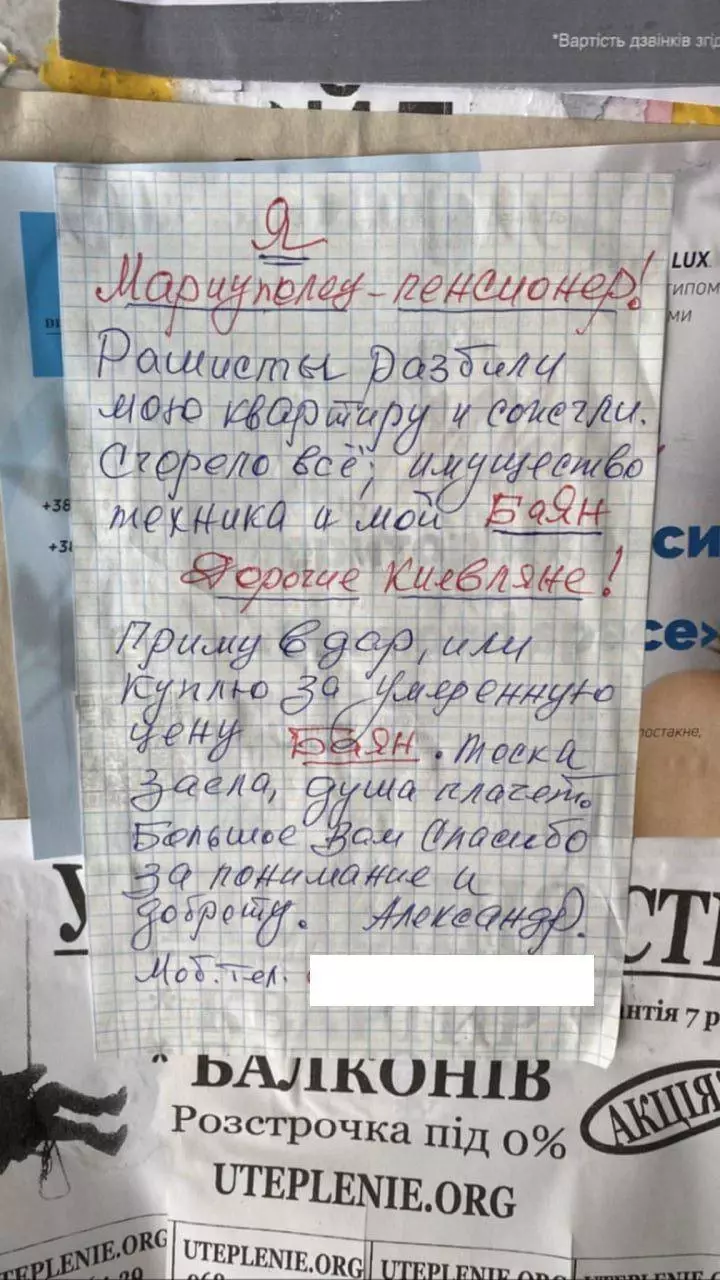 *Вартість дзвінків згід
Я
Мариуполец-пенсионер!
Рашисты разбили
мою квартиру и сожгли.
Сгорело всё; имущество
техника и мой Баян
Дорогие Киевляне!
Приму в дар, или
куплю за умеренную
цену Баян. Тоска
заела, душа плачет.
Большое Вам Спасибо
за понимание и
доброту. Александр.
Моб. тел.
LUX
типом
ми
+38
+38
си
се»
постакне,
У
СТІ
антія 7 р
БАЛКОНІВ
АКЦІЯ
Розстрочка під 0%
UTEPLENIE.ORG
TEPLENIE.ORG
UTEPLENIE.ORG
UTEPLENIE.ORG